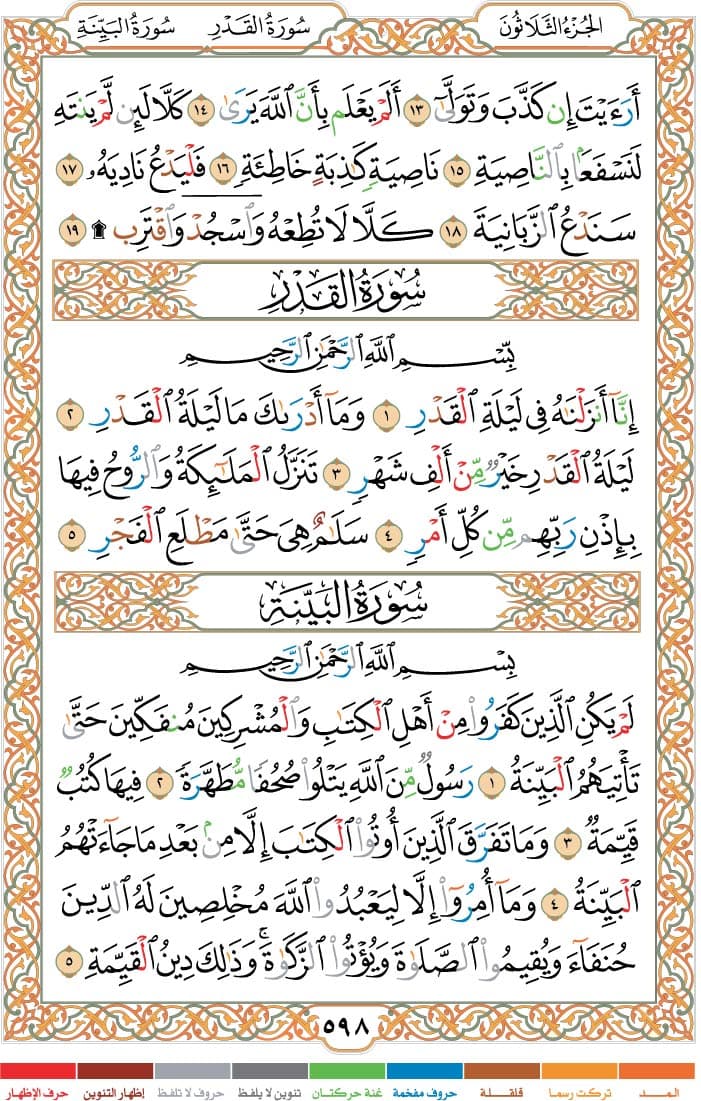 الجُزءُ الثَّلَاثُونَ سُورَةُ القَدْرِ سُورَةُ البَيِّنَةِ
أَرَءَيۡتَ إِن كَذَّبَ وَتَوَلَّىٰٓ ١٣ أَلَمۡ يَعۡلَم بِأَنَّ ٱللَّهَ يَرَىٰ ١٤ كَلَّا لَئِن لَّمۡ يَنتَهِ
لَنَسۡفَعَۢا بِٱلنَّاصِيَةِ ١٥ نَاصِيَةٖ كَٰذِبَةٍ خَاطِئَةٖ ١٦ فَلۡيَدۡعُ نَادِيَهُۥ ١٧
سَنَدۡعُ ٱلزَّبَانِيَةَ ١٨ كَلَّا لَا تُطِعۡهُ وَٱسۡجُدۡۤ وَٱقۡتَرِب ۩ ١٩
سُورَةُ القَدْرِ
بِسۡمِ ٱللَّهِ ٱلرَّحۡمَٰنِ ٱلرَّحِيمِ
إِنَّآ أَنزَلۡنَٰهُ فِي لَيۡلَةِ ٱلۡقَدۡرِ ١ وَمَآ أَدۡرَىٰكَ مَا لَيۡلَةُ ٱلۡقَدۡرِ ٢
لَيۡلَةُ ٱلۡقَدۡرِ خَيۡرٞ مِّنۡ أَلۡفِ شَهۡرٖ ٣ تَنَزَّلُ ٱلۡمَلَٰٓئِكَةُ وَٱلرُّوحُ فِيهَا
بِإِذۡنِ رَبِّهِم مِّن كُلِّ أَمۡرٖ ٤ سَلَٰمٌ هِيَ حَتَّىٰ مَطۡلَعِ ٱلۡفَجۡرِ ٥
سُورَةُ البَيِّنَةِ
بِسۡمِ ٱللَّهِ ٱلرَّحۡمَٰنِ ٱلرَّحِيمِ
لَمۡ يَكُنِ ٱلَّذِينَ كَفَرُواْ مِنۡ أَهۡلِ ٱلۡكِتَٰبِ وَٱلۡمُشۡرِكِينَ مُنفَكِّينَ حَتَّىٰ
تَأۡتِيَهُمُ ٱلۡبَيِّنَةُ ١ رَسُولٞ مِّنَ ٱللَّهِ يَتۡلُواْ صُحُفٗا مُّطَهَّرَةٗ ٢ فِيهَا كُتُبٞ
قَيِّمَةٞ ٣ وَمَا تَفَرَّقَ ٱلَّذِينَ أُوتُواْ ٱلۡكِتَٰبَ إِلَّا مِنۢ بَعۡدِ مَا جَآءَتۡهُمُ
ٱلۡبَيِّنَةُ ٤ وَمَآ أُمِرُوٓاْ إِلَّا لِيَعۡبُدُواْ ٱللَّهَ مُخۡلِصِينَ لَهُ ٱلدِّينَ
حُنَفَآءَ وَيُقِيمُواْ ٱلصَّلَوٰةَ وَيُؤۡتُواْ ٱلزَّكَوٰةَۚ وَذَٰلِكَ دِينُ ٱلۡقَيِّمَةِ ٥
٥٩٨
المــد تركت رسما قلقلة حروف مفخمة غنة حركتان تنوين لا يلفظ حروف لا تلفظ إظهار التنوين حرف الإظهار